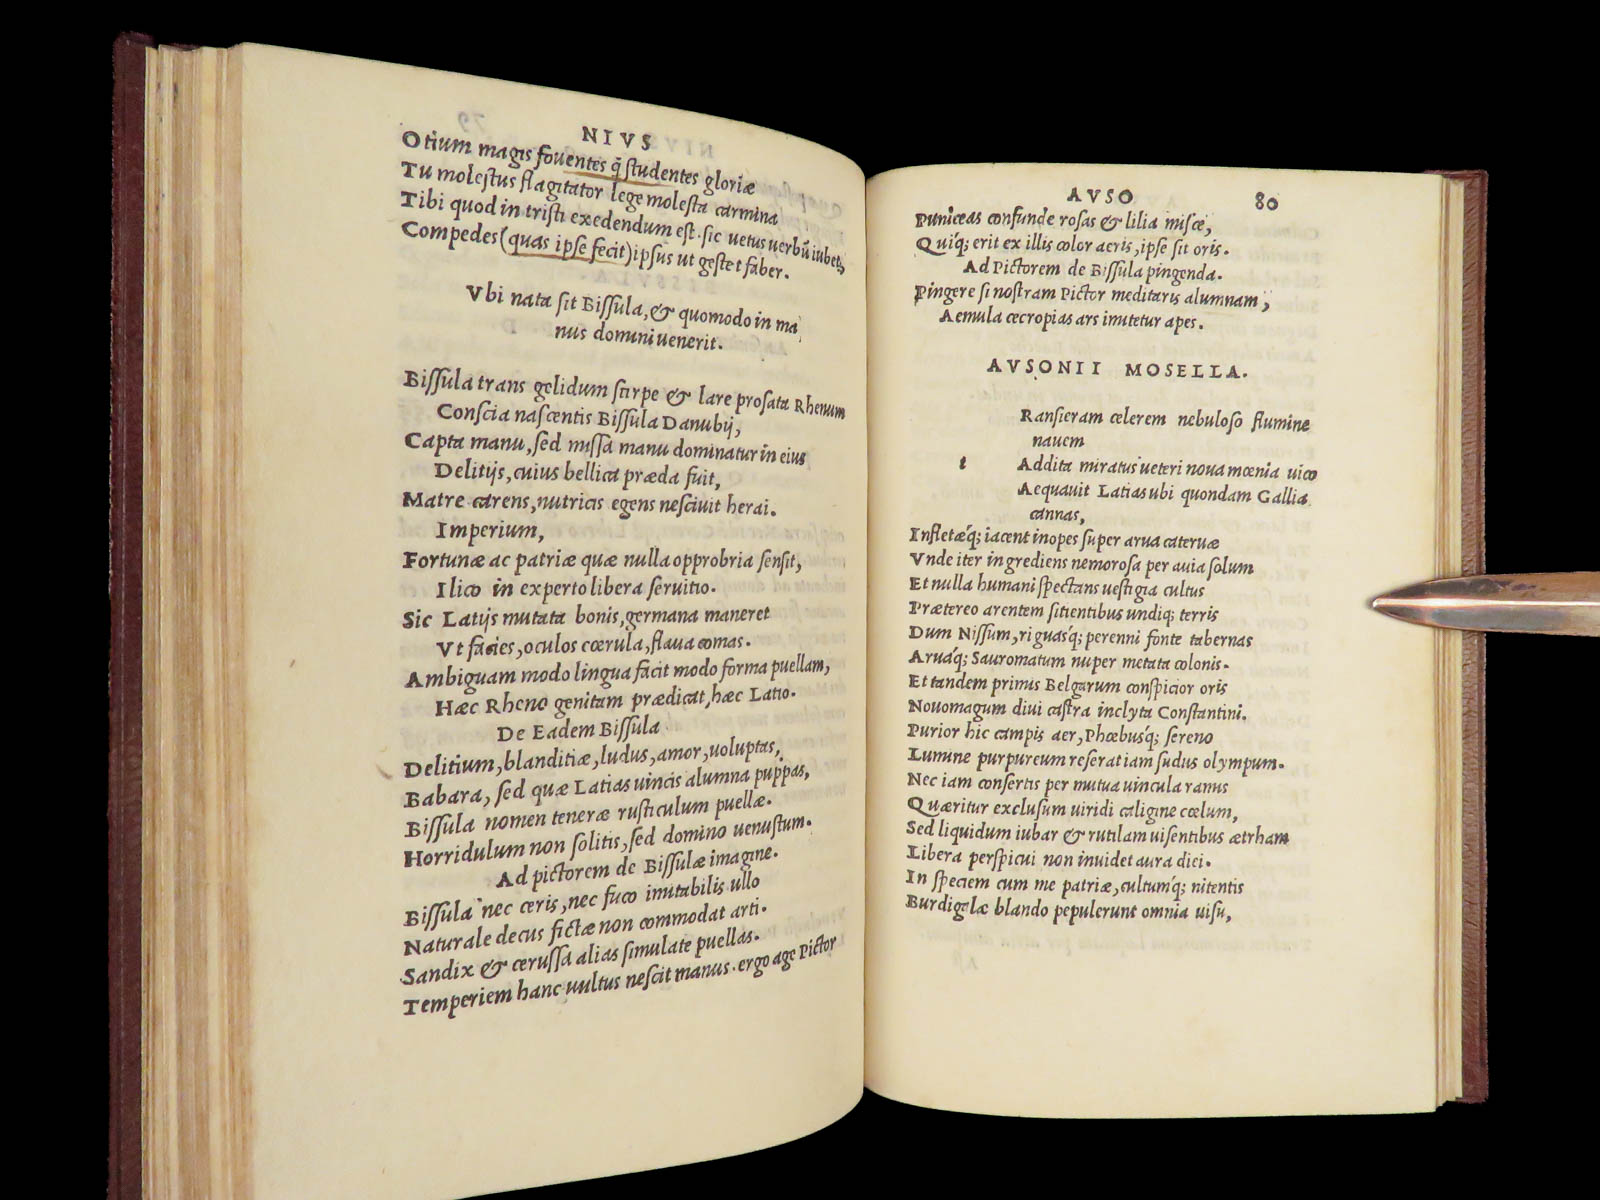 NIVS
Otium magis fouentes q̃ studentes gloriæ
Tu molestus flagitator lege molesta carmina
Tibi quod in tristi exedendum est. sic uetus uerbũ iubet,
Compedes (quas ipse fecit) ipsus ut gestet faber.
Vbi nata sit Bissula, & quomodo in ma
nus domini uenerit.
Bissula trans gelidum stirpe & lare prosata Rhenum
Conscia nascentis Bissula Danubij,
Capta manu, sed missa manu dominatur in eius
Delitijs, cuius bellica præda fuit,
Matre carens, nutricis egens nesciuit herai.
Imperium,
Fortunæ ac patriæ quæ nulla opprobria sensit,
Ilico in experto libera seruitio.
Sic Latijs mutata bonis, germana maneret
Vt facies, oculos cœrula, flaua comas.
Ambiguam modo lingua facit modo forma puellam,
Hæc Rheno genitam prædicat, hæc Latio.
De Eadem Bissula
Delitium, blanditiæ, ludus, amor, uoluptas,
Babara, sed quæ Latias uincis alumna puppas,
Bissula nomen teneræ rusticulum puellæ.
Horridulum non solitis, sed domino uenustum.
Ad pictorem de Bissulæ imagine.
Bissula nec ceris, nec fuco imitabilis ullo
Naturale decus fictæ non commodat arti.
Sandix & cerussa alias simulate puellas.
Temperiem hanc uultus nescit manus. ergo age Pictor
AVSO 80
Puniceas confunde rosas & lilia misce,
Quíq; erit ex illis color aeris, ipse sit oris.
Ad Pictorem de Bissula pingenda.
Pingere si nostram Pictor meditaris alumnam,
Aemula cecropias ars imitetur apes.
AVSONII MOSELLA.
Ransieram celerem nebuloso flumine
nauem
t Addita miratus ueteri noua mœnia uico
Aequauit Latias ubi quondam Gallia
cannas,
Infletæq́; iacent inopes super arua cateruæ
Vnde iter ingrediens nemorosa per auia solum
Et nulla humani spectans uestigia cultus
Prætereo arentem sitientibus undiq; terris
Dum Nissum, riguasq́; perenni fonte tabernas
Aruáq; Sauromatum nuper metata colonis.
Et tandem primis Belgarum conspicior oris
Nouomagum diui castra inclyta Constantini.
Purior hic campis aer, Phœbusq́; sereno
Lumine purpureum reserat iam sudus olympum.
Nec iam consertis per mutua uincula ramis
Quæritur exclusum uiridi caligine cœlum,
Sed liquidum iubar & rutilam uisentibus ætrham
Libera perspicui non inuidet aura diei.
In speciem cum me patriæ, cultumq́; nitentis
Burdigalæ blando pepulerunt omnia uisu,